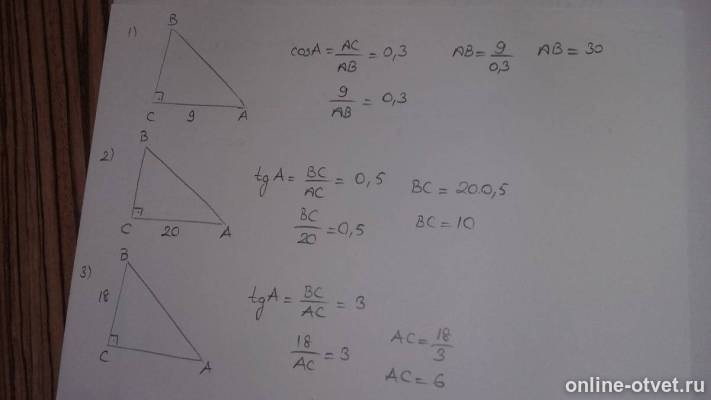 1)
B
C 9 A
cosA = AC/AB = 0,3
9/AB = 0,3
AB = 9/0,3
AB = 30
2)
B
C 20 A
tgA = BC/AC = 0,5
BC/20 = 0,5
BC = 20.0,5
BC = 10
3)
B
18
C A
tgA = BC/AC = 3
18/AC = 3
AC = 18/3
AC = 6
online-otvet.ru